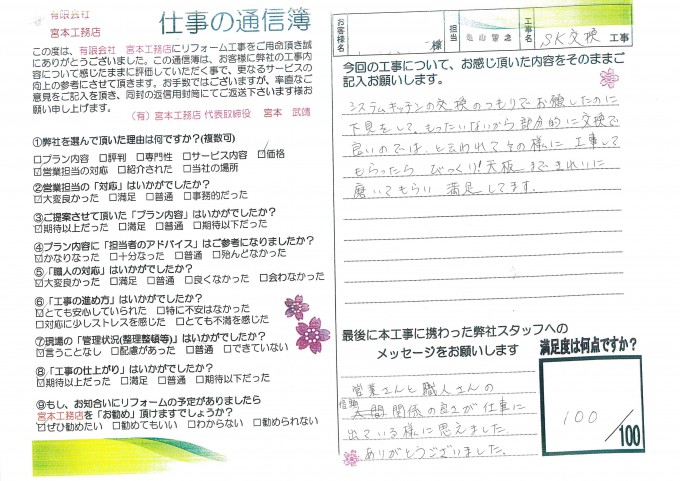 有限会社
宮本工務店
仕事の通信簿
この度は、有限会社 宮本工務店にリフォーム工事をご用命頂き誠
にありがとうございました。この通信簿は、お客様に弊社の工事内
容について感じたままに評価していただく事で、更なるサービスの
向上の参考にさせて頂きます。お手数ではございますが、率直なご
意見をご記入を頂き、同封の返信用封筒にてご返送下さいます様お
願い申し上げます。
(有)宮本工務店 代表取締役 宮本 武靖
①弊社を選んで頂いた理由は何ですか?(複数可)
□プラン内容 □評判 □専門性 □サービス内容 ☑価格
☑営業担当の対応 □紹介された □当社の場所
②営業担当の「対応」はいかがでしたか?
☑大変良かった □満足 □普通 □事務的だった
③ご提案させて頂いた「プラン内容」はいかがでしたか?
☑期待以上だった □満足 □普通 □期待以下だった
④プラン内容に「担当者のアドバイス」はご参考になりましたか?
☑かなりなった □十分なった □普通 □殆んどなかった
⑤「職人の対応」はいかがでしたか?
☑大変良かった □満足 □普通 □良くなかった □会わなかった
⑥「工事の進め方」はいかがでしたか?
☑とても安心していられた □特に不安はなかった
□対応に少しストレスを感じた □とても不満を感じた
⑦現場の「管理状況(整理整頓等)」はいかがでしたか?
☑言うことなし □配慮があった □普通 □できていない
⑧「工事の仕上がり」はいかがでしたか?
☑期待以上だった □満足 □普通 □期待以下だった
⑨もし、お知合いにリフォームの予定がありましたら
宮本工務店を「お勧め」頂けますでしょうか?
☑ぜひ勧めたい □勧めてもいい □わからない □勧められない
お客様名 様 担当 工事名 SK交換 工事
今回の工事について、お感じ頂いた内容をそのままご
記入お願いします。
システムキッチンの交換のつもりでお願したのに
下見をして、もったいないから部分的に交換で
良いのでは、と云われてその様に工事して
もらったら びっくり!天板まできれいに
磨いてもらい 満足してます。
最後に本工事に携わった弊社スタッフへの
メッセージをお願いします
営業さんと職人さんの
信頼関係の良さが仕事に
出ている様に思えました。
ありがとうございました。
満足度は何点ですか?
100
/100